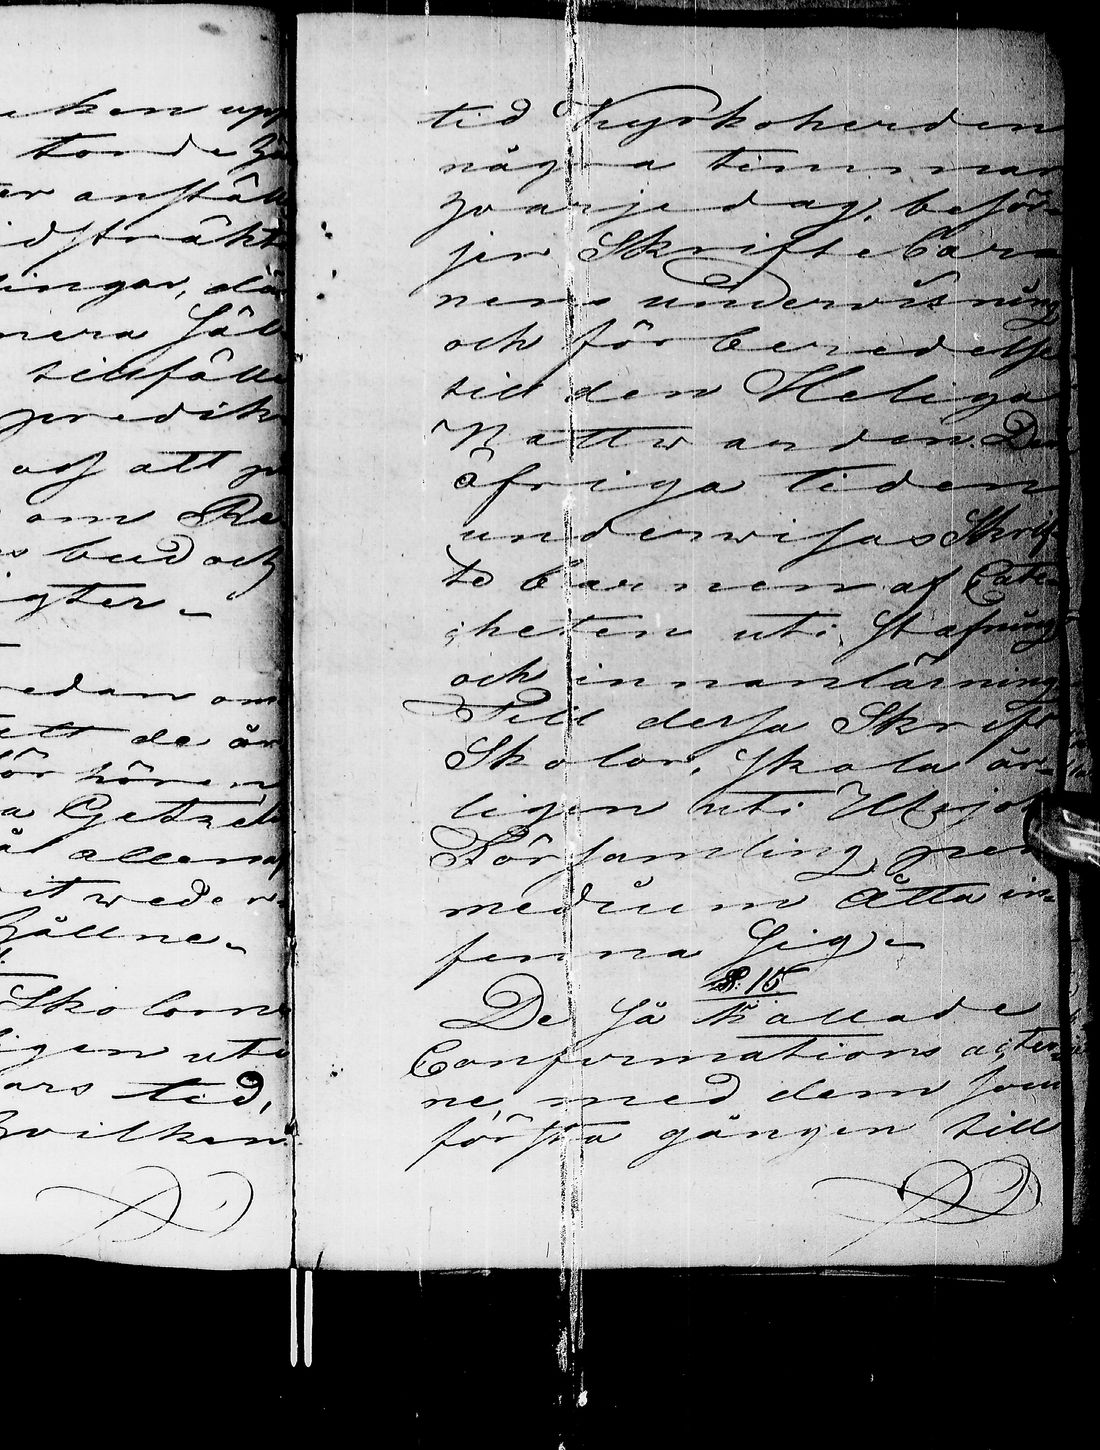 ken upp
torde
er anställ
idsträkt
ingar, där
nera
tillfälle
predik
och att
om Re
bud och
gter
redan om
att de är
för hören
a Getzel
allena
it wede
hållne
Skolorne
ligen uti
ars tid,
hvilken
tid Kyrkoherden
några timmar
hvarje dag, besör-
jer Skriftebar-
nens underwisning
och förberedelse
till den Heliga
Nattwarden. Den
öfriga tiden
underwisas Skrif-
tebarnen af Cate-
cheten uti stafning
och innanläsning
Till dessa Skrift
Skolor, skola är-
ligen uti Utsjoki
Församling per
medium Åtta in-
finna sig
§. 15
De så kallade
Confirmations acter-
ne, med dem som
första gången till